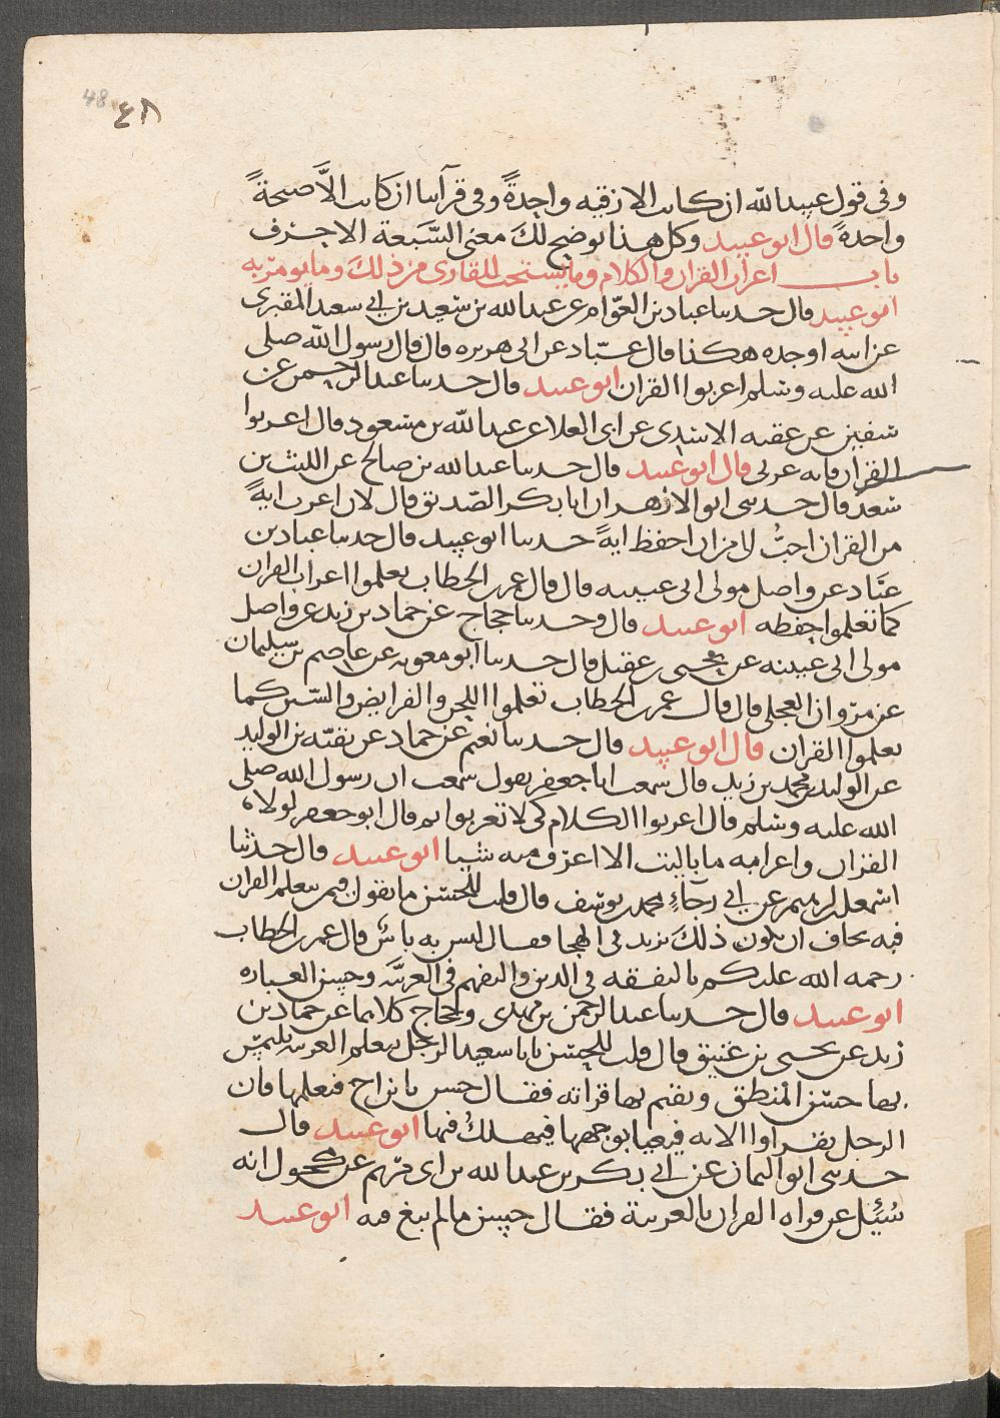 48 ٤٨
وفى قول عبد الله ان كانت الا زقيه واحدةً وفى قرآتنا ان كانت الاَّ صيحةً
واحدةً قال ابو عبيد وكل هذا يوضح لكَ معنى السَّبعة الاحرف
باب اعراب القران والكلام وما يستحب للقارى من ذلك وما يومر به
ابو عبيد قال حدثنا عباد بن العوّام عن عبد الله بن سعيد بن ابي سعد المقبرى
عن ابيه او جده هكذا قال عبّاد عن ابى هريره قال قال رسول الله صلى
الله عليه وسلم اعربوا القران ابو عبيد قال حدثنا عبد الرحمن عن
سفين عن عقبه الاسدى عن ابى العلا عن عبد الله بن مسعود قال اعربوا
القران فانه عربى قال ابو عبيد قال حدثنا عبد الله بن صالح عن الليث بن
سعد قال حدثنى ابو الازهر ان ابا بكر الصّديق قال لان اعرب ايةً
من القران احبُّ الى من ان احفظ ايةً حدثنا ابو عبيد قال حدثنا عباد بن
عبَّاد عن واصل مولى ابى عيينه قال قال عمر بن الخطاب تعلموا اعراب القران
كما تعلموا حفظه ابو عبيد قال وحدثنا حجاج عن حماد بن زيد عن واصل
مولى ابى عيينه عن يحيى بن عقيل قال حدثنا ابو معويه عن عاصم بن سليمان
عن مورّق العجلى قال قال عمر بن الخطاب تعلموا اللحن والفرايض والسّنن كما
تعلموا القران قال ابو عبيد قال حدثنا نعيم عن حماد عن بقيّه بن الوليد
عن الوليد بن محمد بن زيد قال سمعت ابا جعفر يقول سمعت ان رسول الله صلى
الله عليه وسلم قال اعربوا الكلام كى لا تعربوا ثم قال ابو جعفر لولا
القران واعرابه ما باليت الا اعرف منه شيا ابو عبيد قال حدثنا
اسمعيل بن ابرهيم عن ابي رجآءٍ محمد بن يوسف قال قلت للحسن ما تقول فيمن يتعلم القران
فيه يخاف ان يكون ذلك يزيد فى الهجا فقال ليس به باسٌ قال عمر بن الخطاب
رحمه الله عليكم بالتفقه فى الدين والتفهم فى العربيَّه وحسن العباره
ابو عبيد قال حدثنا عبد الرحمن بن مهدى وحجاج كلاهما عن حماد بن
زيد عن يحيى بن عتيق قال قلت للحسن يابا سعيد الرجل يتعلم العربيه يلتمس
بها حسن المنطق ويقيم بها قراته فقال حسن يا بن اخ فتعلمها فان
الرجل يقراوا الايه فيعيا بوجهها فيهلك فيها ابو عبيد قال
حدثنى ابو اليمان عن ابي بكر بن عبد الله بن ابى مريم عن مكحول انه
سُئِيل عن قراه القران بالعربية فقال حسن ما لم يبغ فيه ابو عبيد